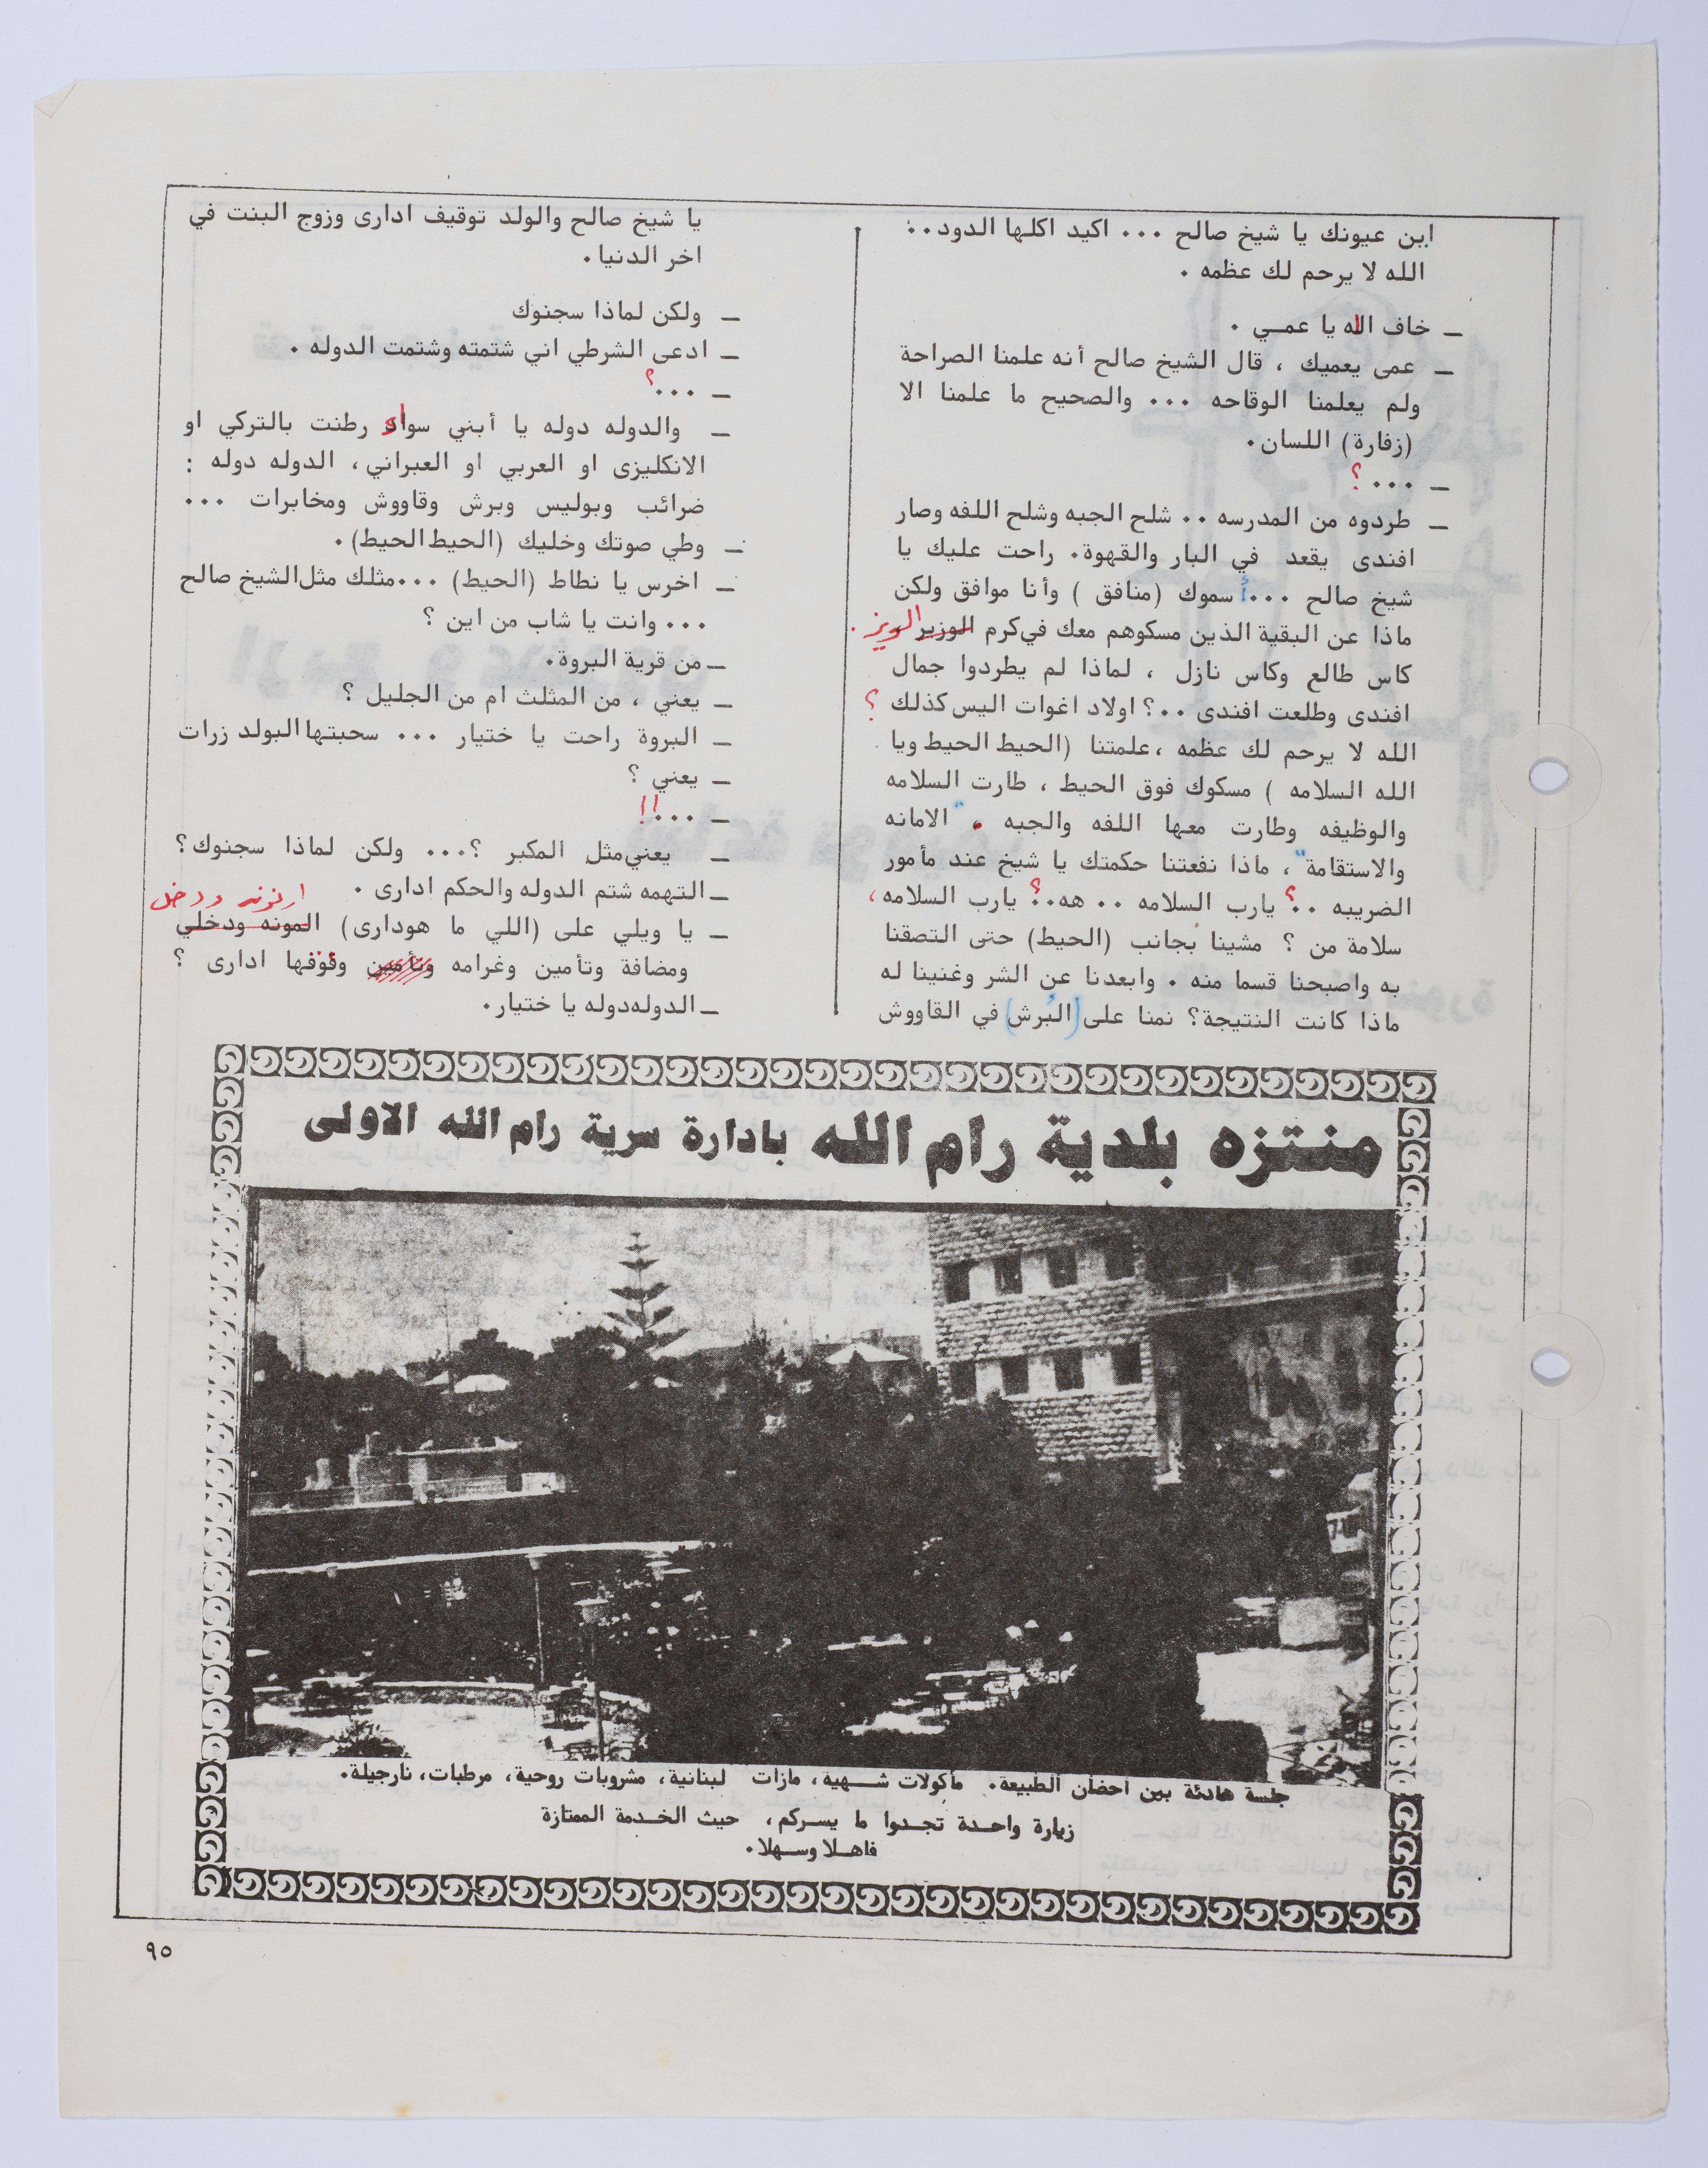 اين عيونك يا شيخ صالح ... اكيد اكلها الدود..
الله لا يرحم لك عظمه .
_ خاف الله يا عمي .
_ عمى يعميك ، قال الشيخ صالح أنه علمنا الصراحة
ولم يعلمنا الوقاحه ... والصحيح ما علمنا الا
(زفارة) اللسان.
_ ...؟
_ طردوه من المدرسه .. شلح الجبه وشلح اللفه وصار
افندى يقعد في البار والقهوة. راحت عليك يا
شيخ صالح ...أسموك (منافق ) وأنا موافق ولكن
ماذا عن البقية الذين مسكوهم معك في كرم الوزير الويز .
كاس طالع وكاس نازل ، لماذا لم يطردوا جمال
افندى وطلعت افندى ..؟ اولاد اغوات اليس كذلك ؟
الله لا يرحم لك عظمه ،علمتنا (الحيط الحيط ويا
الله السلامه ) مسكوك فوق الحيط ، طارت السلامه
والوظيفه وطارت معها اللفه والجبه . "الامانه
والاستقامة" ، ماذا نفعتنا حكمتك يا شيخ عند مأمور
الضريبه ..؟ يارب السلامه .. هه.؟ يارب السلامه ،
سلامة من ؟ مشينا بجانب (الحيط) حتى التصقنا
به واصبحنا قسما منه . وابعدنا عن الشر وغنينا له
ماذا كانت النتيجة؟ نمنا على (البُرش) في القاووش
يا شيخ صالح والولد توقيف ادارى وزوج البنت في
اخر الدنيا.
_ ولكن لماذا سجنوك
_ ادعى الشرطي اني شتمته وشتمت الدوله .
_ ...؟
_ والدوله دوله يا أبني سواء رطنت بالتركي او
الانكليزى او العربي او العبراني، الدوله دوله :
ضرائب وبوليس وبرش وقاووش ومخابرات ...
_ وطي صوتك وخليك (الحيط الحيط).
_ اخرس يا نطاط (الحيط) ...مثلك مثل الشيخ صالح
... وانت يا شاب من اين ؟
_ من قرية البروة.
_ يعني ، من المثلث ام من الجليل ؟
_ البروة راحت يا ختيار ... سحبتها البولد زرات
_ يعني ؟
_ ...!!
_ يعني مثل المكبر ؟... ولكن لماذا سجنوك؟
_ التهمه شتم الدوله والحكم ادارى .
ارنونه ودخل
_ يا ويلي على (اللي ما هودارى) المونه ودخلي
ومضافة وتأمين وغرامه وتأمين وقوفها ادارى ؟
_ الدوله دوله يا ختيار.
منتزه بلدية رام الله بادارة سرية رام الله الاولى
جلسة هادئة بين احضان الطبيعة. مأكولات شهية، مازات لبنانية، مشروبات روحية، مرطبات، نارجيلة.
زيارة واحدة تجدوا ما يسركم، حيث الخدمة الممتازة
فاهلا وسهلا.
٩٥